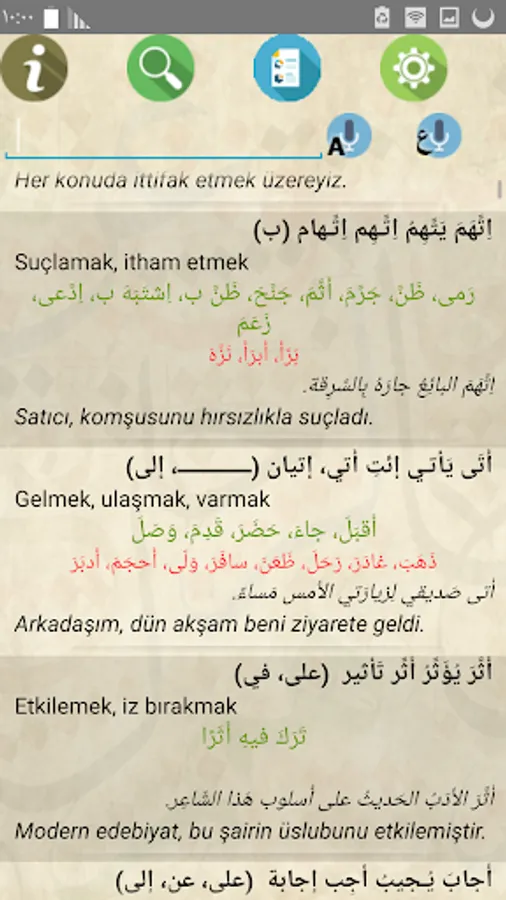 ١٠:٠٠
A
ع
Her konuda ittifak etmek üzereyiz.
اِتَّهَمَ يَتَّهِمُ اِتَّـهِم اِتِّـهام (ب)
Suçlamak, itham etmek
رَمى، ظَنَّ، جَرَّمَ، أَثَّمَ، جَنَّحَ، ظَنَّ ب، اِشتَبَهَ ب، اِدَّعى،
زَعَمَ
بَرَّأ، أبرَأ، نَزَّهَ
اِتَّهَمَ البائِعُ جارَهُ بِالسَّرِقة.
Satıcı, komşusunu hırsızlıkla suçladı.
أتَى يَأتـي اِئتِ أتي، إتيان (ـــــــــ، إلى)
Gelmek, ulaşmak, varmak
أقبَلَ، جاءَ، حَضَرَ، قَدِمَ، وَصَلَ
ذَهَبَ، غادَرَ، رَحَلَ، ظَعَنَ، سافَرَ، وَلّى، أحجَمَ، أدبَرَ
أتى صَديقي لِزِيارَتي الأمس مَساءً.
Arkadaşım, dün akşam beni ziyarete geldi.
أثَّرَ يُؤَثِّرُ أثِّر تَأثير (على، في)
Etkilemek, iz bırakmak
تَرَكَ فيهِ أثَرًا
أثَّرَ الأدَبُ الحَديثُ على أسلوب هَذا الشَّاعِر.
Modern edebiyat, bu şairin üslubunu etkilemiştir.
أجابَ يُـجيبُ أجِب إجابة (على، عن، إلى)